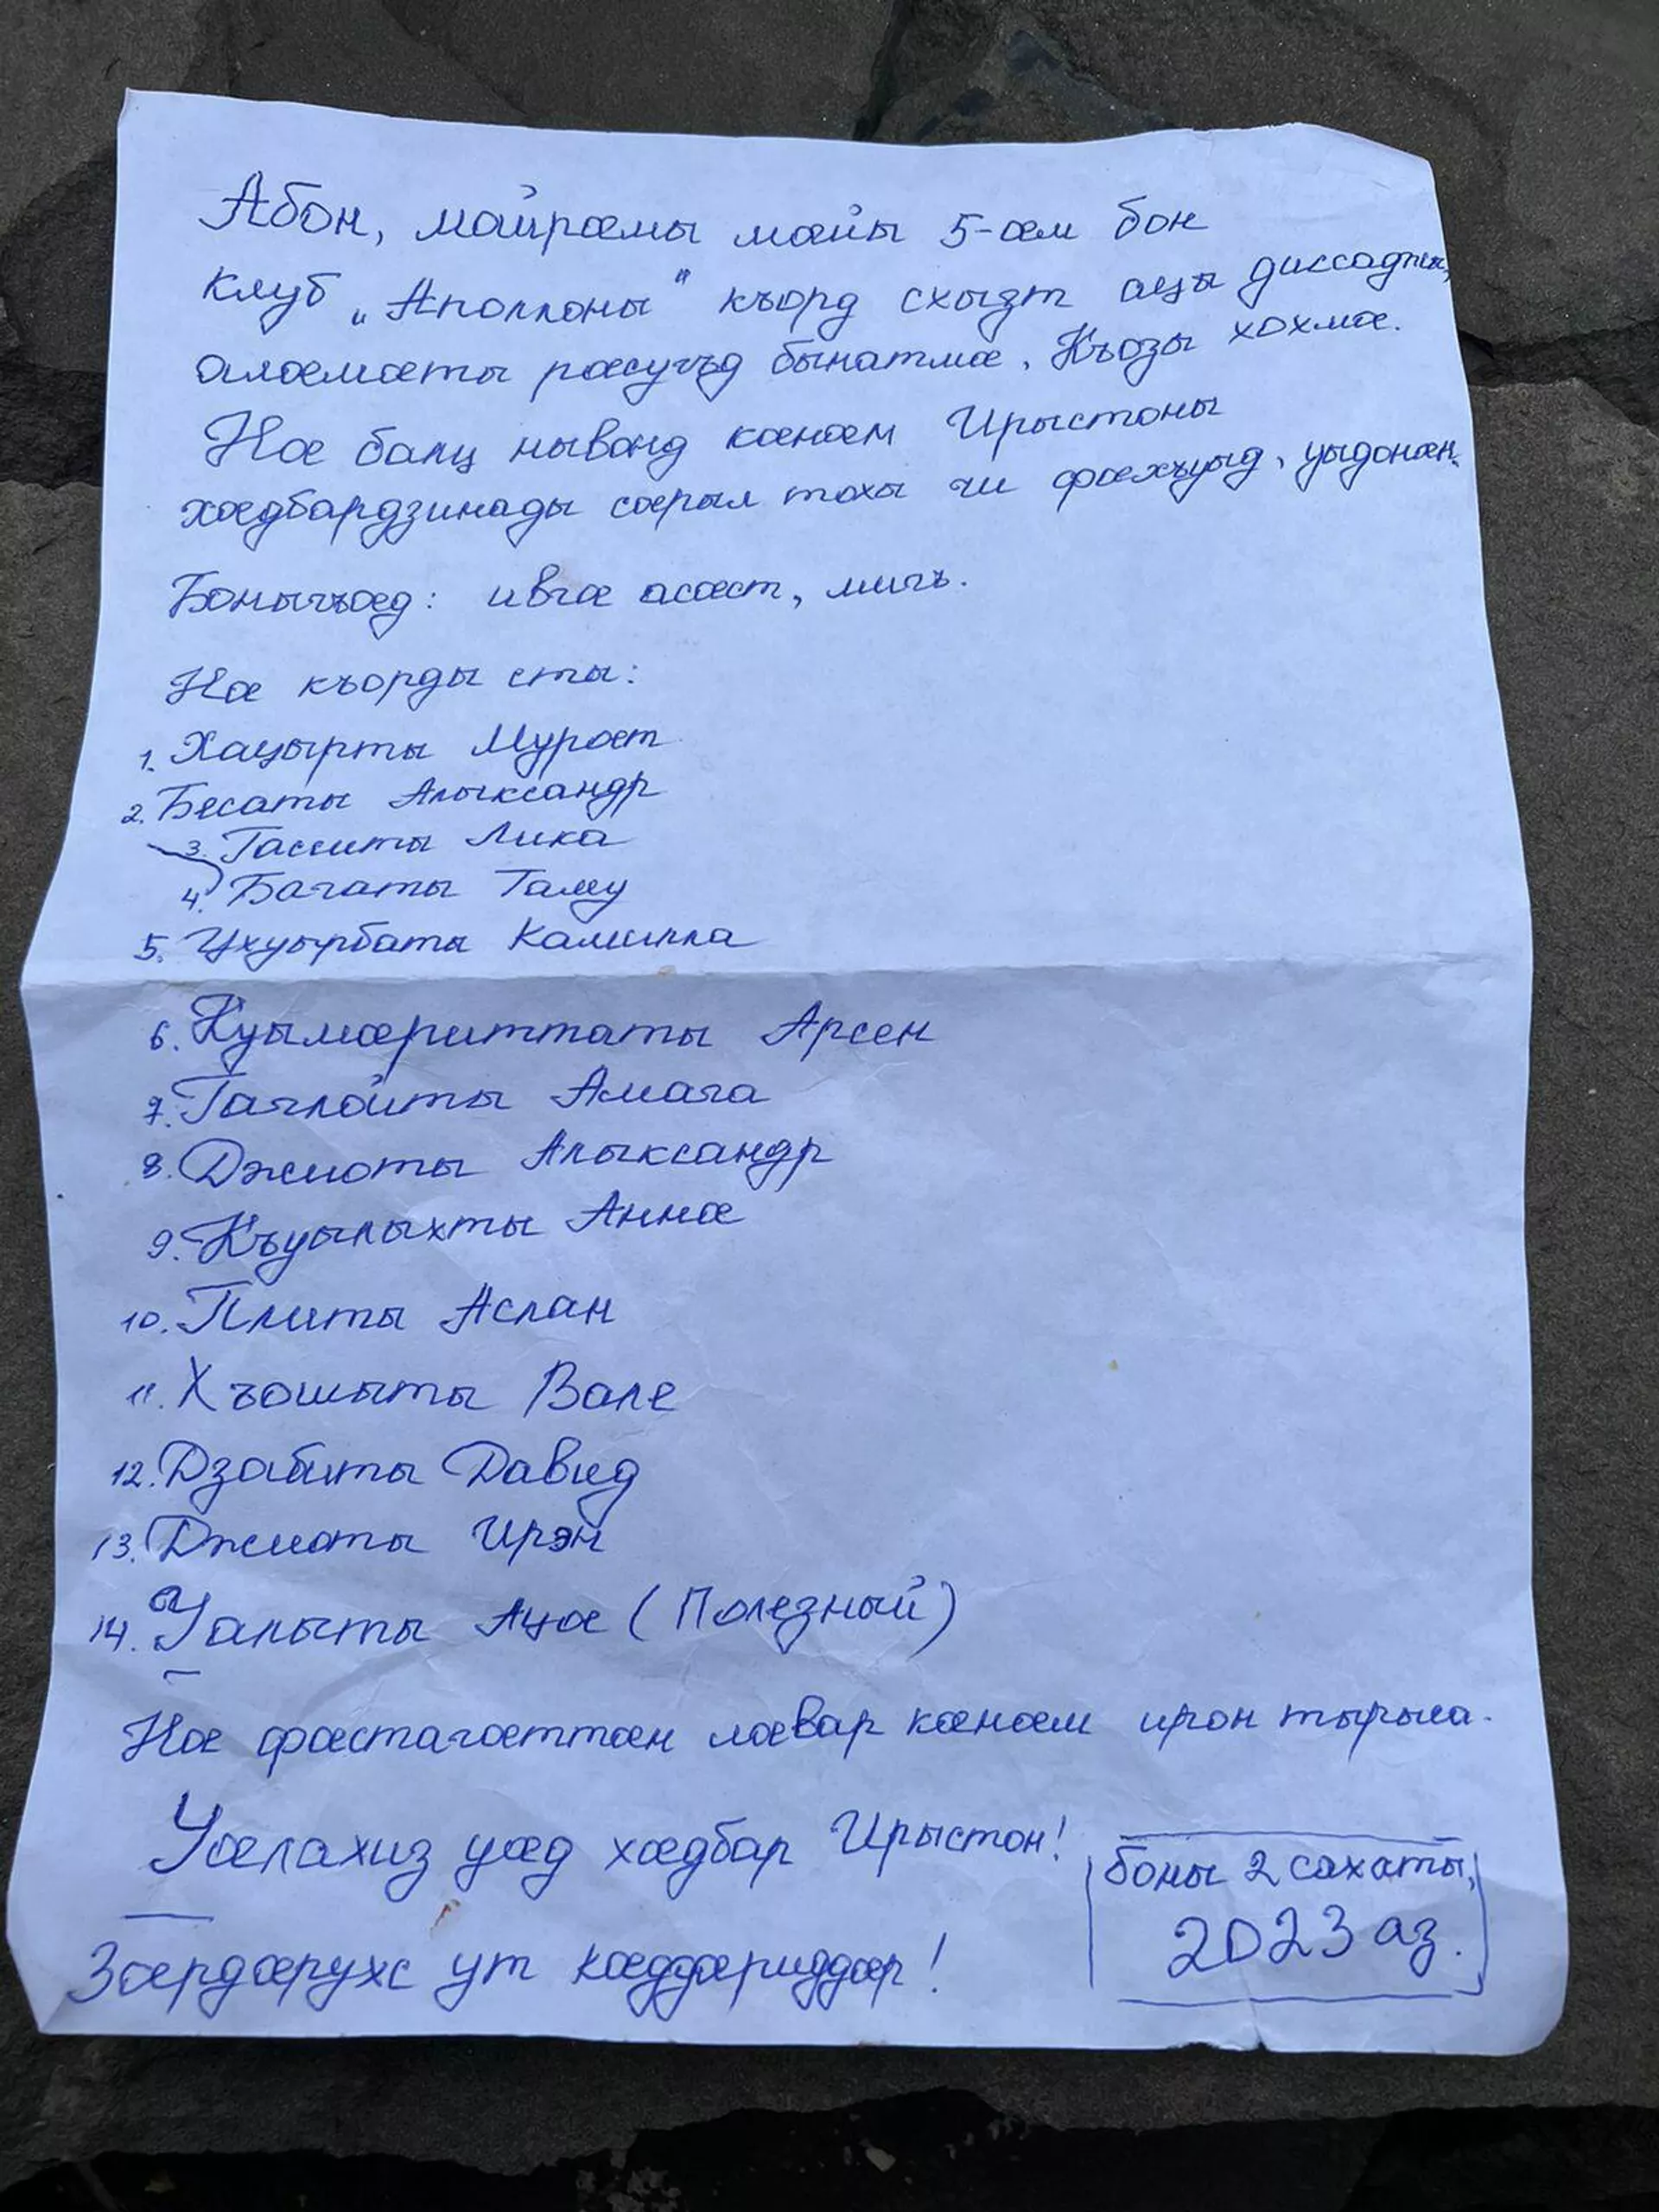 Абон, майрæмы мæйы 5-æм бон
клуб „Аполлоны" къорд схызт ацы диссаджы,
алæмæты рæсугъд бынатмæ, Къозы хохмæ.
Нæ балц нывонд кæнæм Ирыстоны
хæдбардзинады сæрыл тохы чи фæхъуыд, уыдонæн.
Боныгъæд: ивгæ асæст, мигъ.
Нæ къорды сты:
1. Хацырты Мурат
2. Бесаты Алыксандр
3. Гасситы Лика
4. Багаты Таму
5. Цхуырбаты Камилла
6. Куымæриттаты Арсен
7. Гаглойты Амага
8. Джиоты Алыксандр
9. Къуылыхты Аннæ
10. Плиты Аслан
11. Хъошыты Вале
12. Дзабиты Давид
13. Джиоты Ирэн
14. Уалыты Ацæ (Полезный)
Нæ фæстагæттæн лæвар кæнæм ирон тырыса.
Уæлахиз уæд хæдбар Ирыстон!
боны 2 сахаты,
2023 аз.
Зæрдæрухс ут кæддæриддæр!